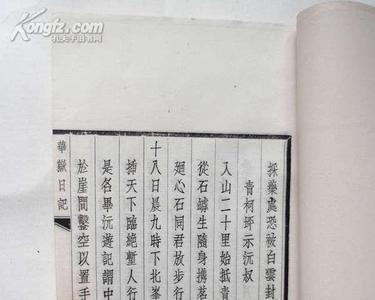 Kongfz.com
孔夫子旧书网
採藥處恐被白雲封
青柯坪示沅叔
入山二十里始抵青
從石罅生隨身携茗
廻心石同君放步行
十八日晨九時下北峯
插天下臨絶塹人行
是名畢沅遊記謂中
於崖間鑿空以置手
華嶽日記